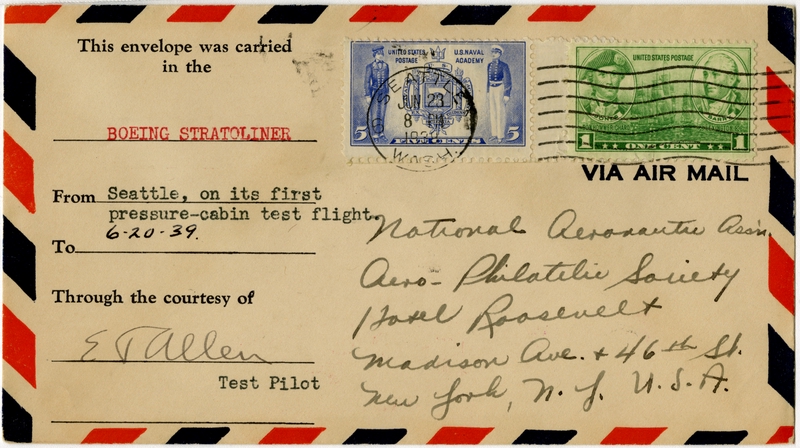 This envelope was carried
in the
BOEING STRATOLINER
From Seattle, on its first
pressure-cabin test flight.
6-20-39.
To
Through the courtesy of
E T Allen
Test Pilot
UNITED STATES POSTAGE
U.S. NAVAL ACADEMY
5 FIVE CENTS 5
SEATTLE
JUN 23
8 PM
WASH.
UNITED STATES POSTAGE
1 ONE CENT 1
VIA AIR MAIL
National Aeronautic Ass'n.
Aero-Philatelic Society
Hotel Roosevelt
Madison Ave. & 46th St.
New York, N. Y. U.S.A.